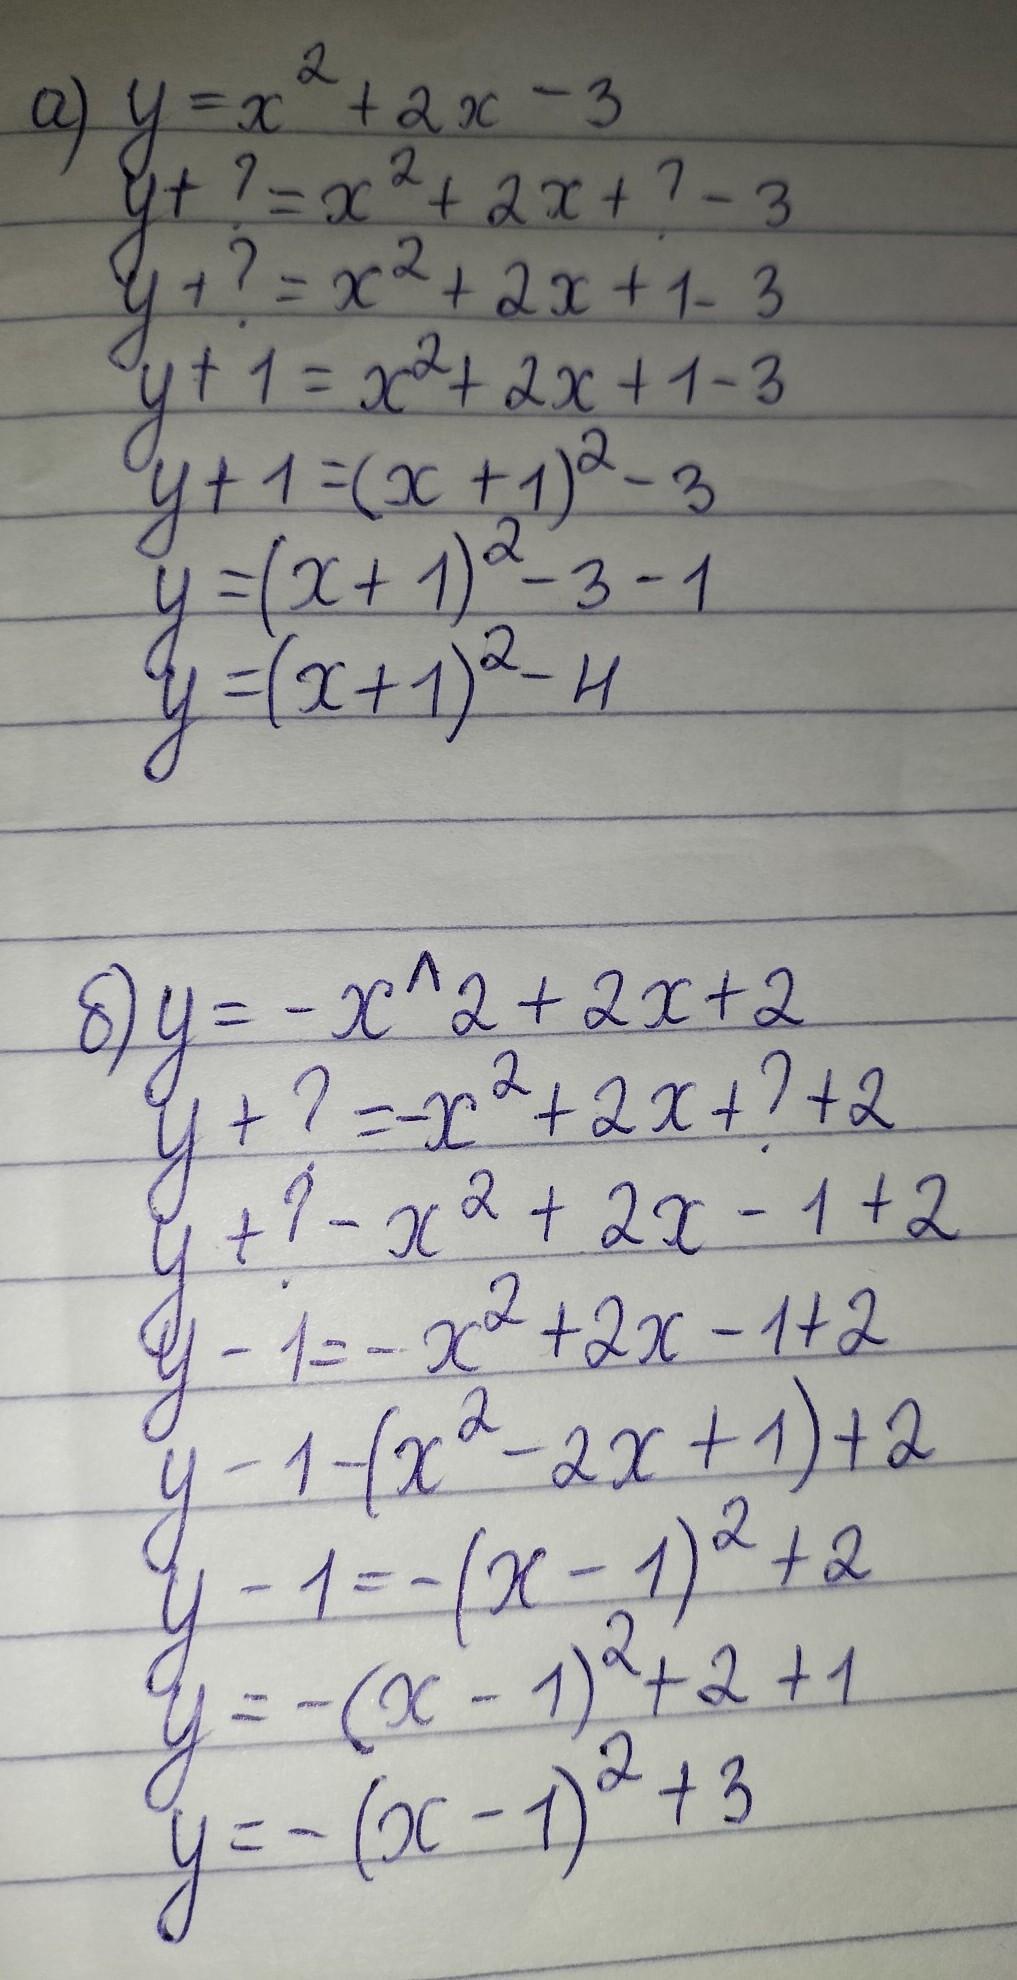 а) y = x² + 2x - 3
y + ? = x² + 2x + ? - 3
y + ? = x² + 2x + 1 - 3
y + 1 = x² + 2x + 1 - 3
y + 1 = (x + 1)² - 3
y = (x + 1)² - 3 - 1
y = (x + 1)² - 4
б) y = - x ^ 2 + 2x + 2
y + ? = -x² + 2x + ? + 2
y + ? - x² + 2x - 1 + 2
y - 1 = - x² + 2x - 1 + 2
y - 1 - (x² - 2x + 1) + 2
y - 1 = - (x - 1)² + 2
y = - (x - 1)² + 2 + 1
y = - (x - 1)² + 3